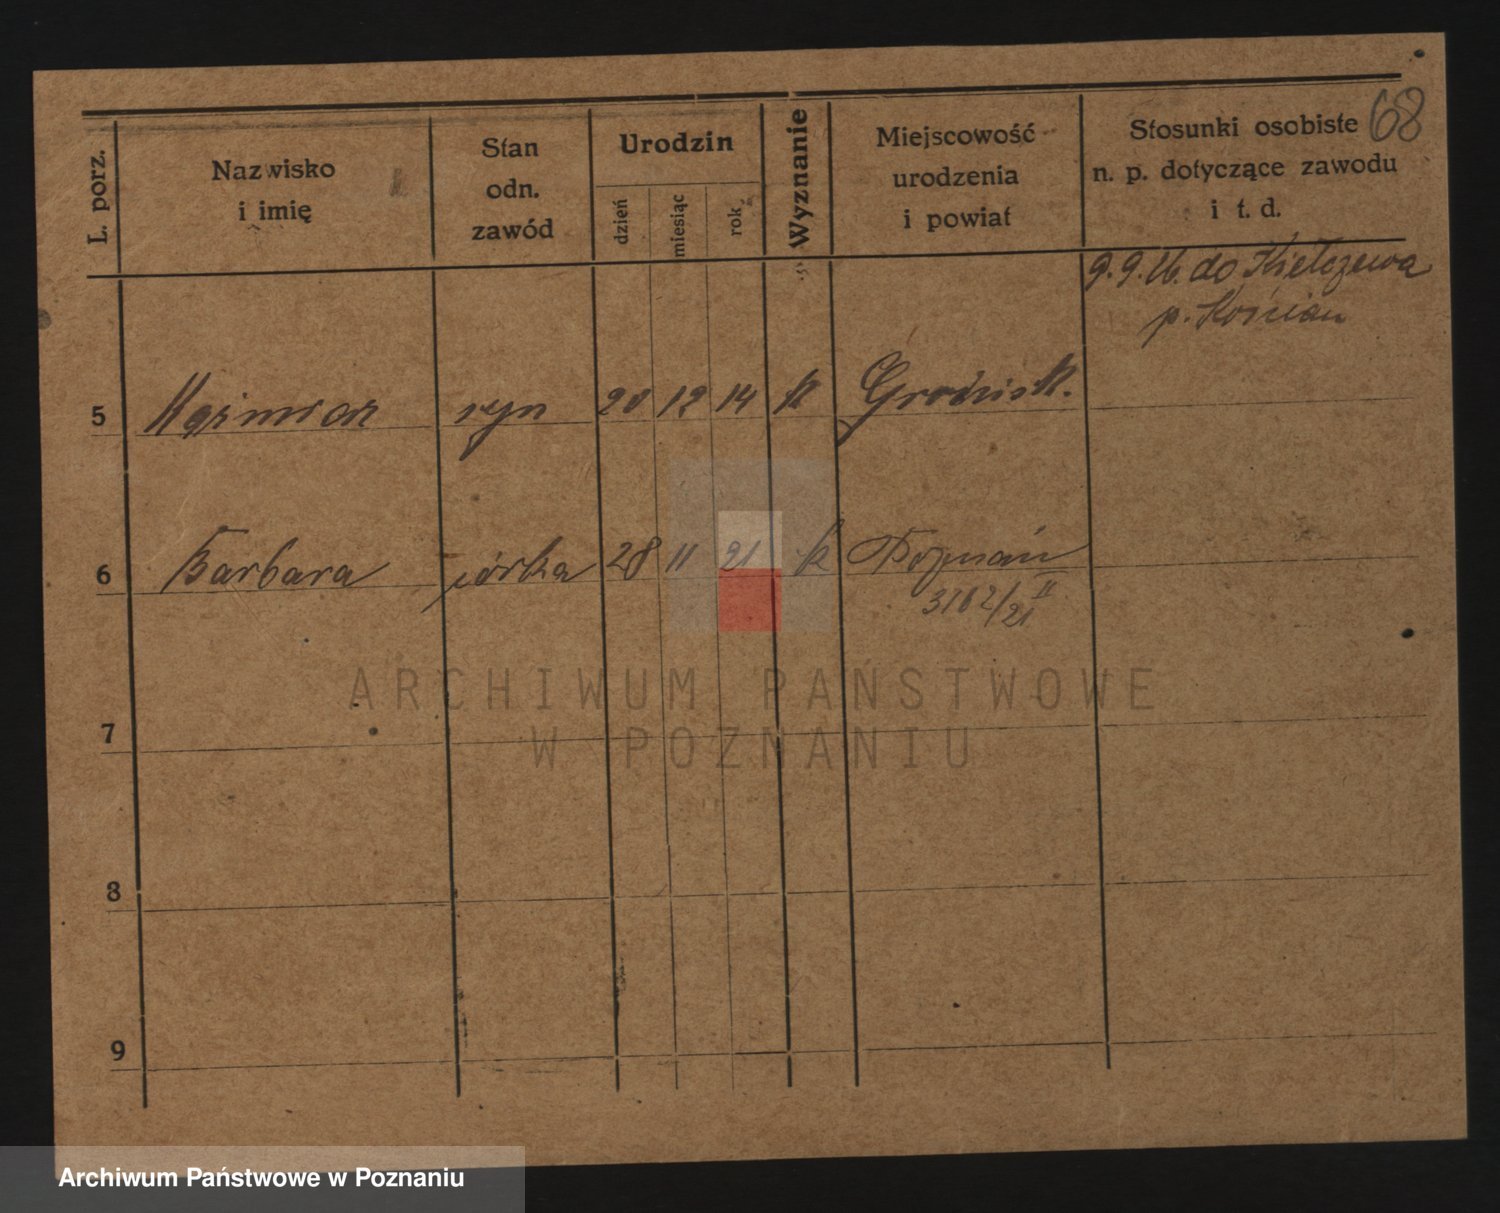 68
L. porz.
Nazwisko
i imię
Stan
odn.
zawód
Urodzin
dzień
miesiąc
rok
Wyznanie
Miejscowość
urodzenia
i powiat
Stosunki osobiste
n. p. dotyczące zawodu
i t. d.
do Kiełczewa
p. Kościan
5 Kaźmierz syn 20 12 14 k Grodzisk.
6 Barbara córka 28 11 21 k Poznań
3162/21 II
7
8
9
ARCHIWUM PAŃSTWOWE
W POZNANIU
Archiwum Państwowe w Poznaniu